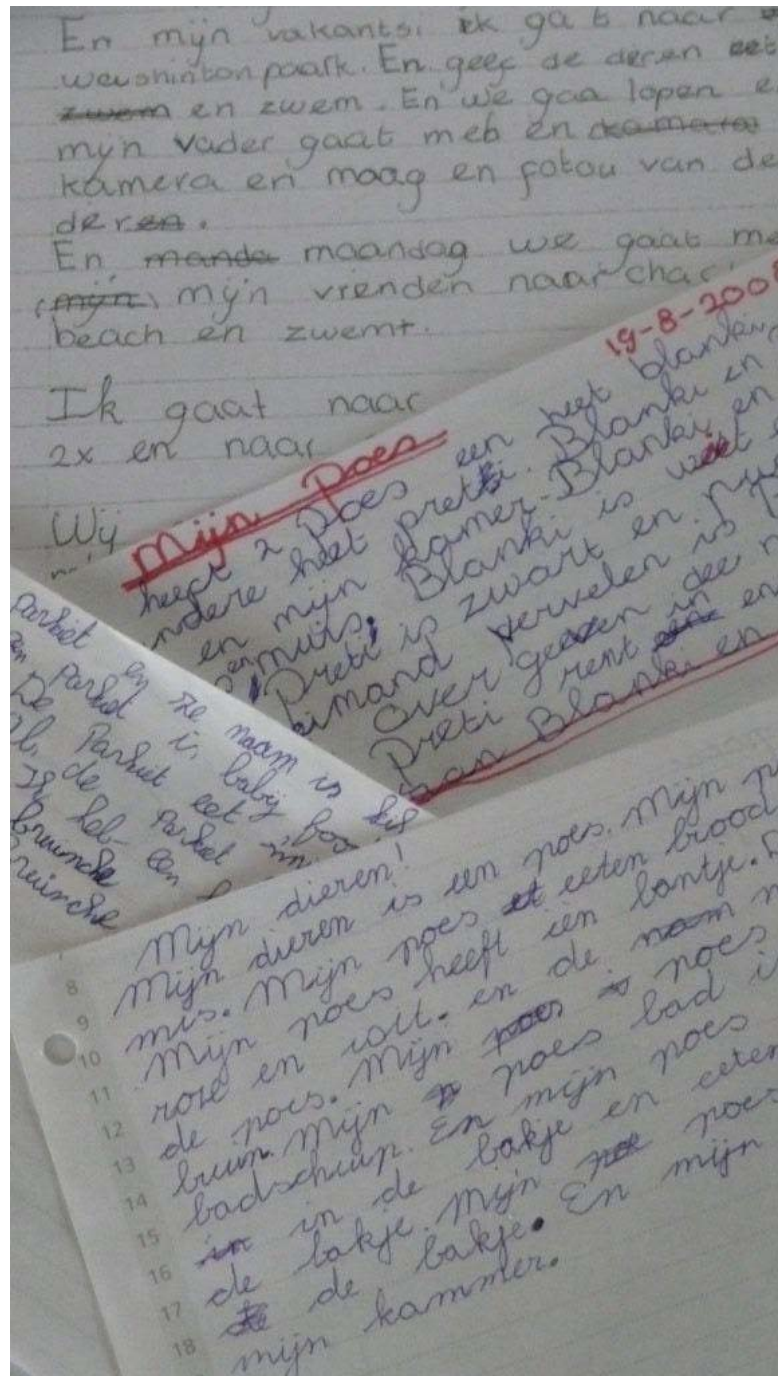 En mijn vakantsi ik gat naar
waushintonpaark. En geef de deren eet
zwem en zwem. En we gaa lopen e
mijn vader gaat met en kamera
kamera en maag en fotou van de
deren.
En manda maandag we gaat me
(mijn) mijn vrienden naar chac
beach en zwemt.
Ik gaat naar
2x en naar
Wij
19-8-200
Mijn Poes
heeft 2 poes een heet blanki,
ndere heet preti. Blanki en
en mijn kamer. Blanki en
muis. Blanki is wit
Preti is zwart en
iemand vervelen is
over geeven in dee
Preti rent en
Blanki en
Parkiet en ze naam is
en Parkiet is baby
De Parkiet eet
de Parkiet
Ik heb een
bruinche
ruinche
Mijn dieren!
8 Mijn dieren is een poes. Mijn
9 mis. Mijn poes et eeten brood
10 Mijn poes heeft een bantje.
11 rose en en de naam
12 de poes. Mijn poes poes
13 bruin. Mijn poes bad
14 badscuip. En mijn poes
15 in in de bakje en eeten
16 de bakje. Mijn poe poes
17 de bakje. En mijn
18 mijn kammer.